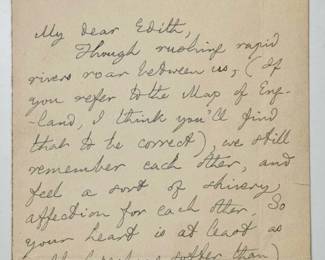 My dear Edith,
Though rushing rapid
rivers roar between us, (if
you refer to the Map of Eng-
-land, I think you'll find
that to be correct), we still
remember each other, and
feel a sort of shivery
affection for each other. So
your heart is at least as